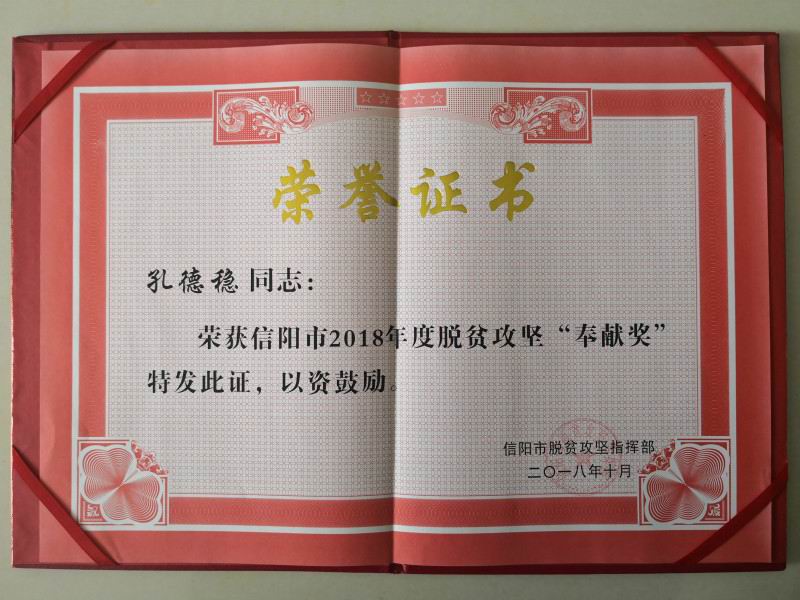 荣誉证书
孔德稳 同志：
荣获信阳市2018年度脱贫攻坚“奉献奖”
特发此证，以资鼓励。
信阳市脱贫攻坚指挥部
二〇一八年十月